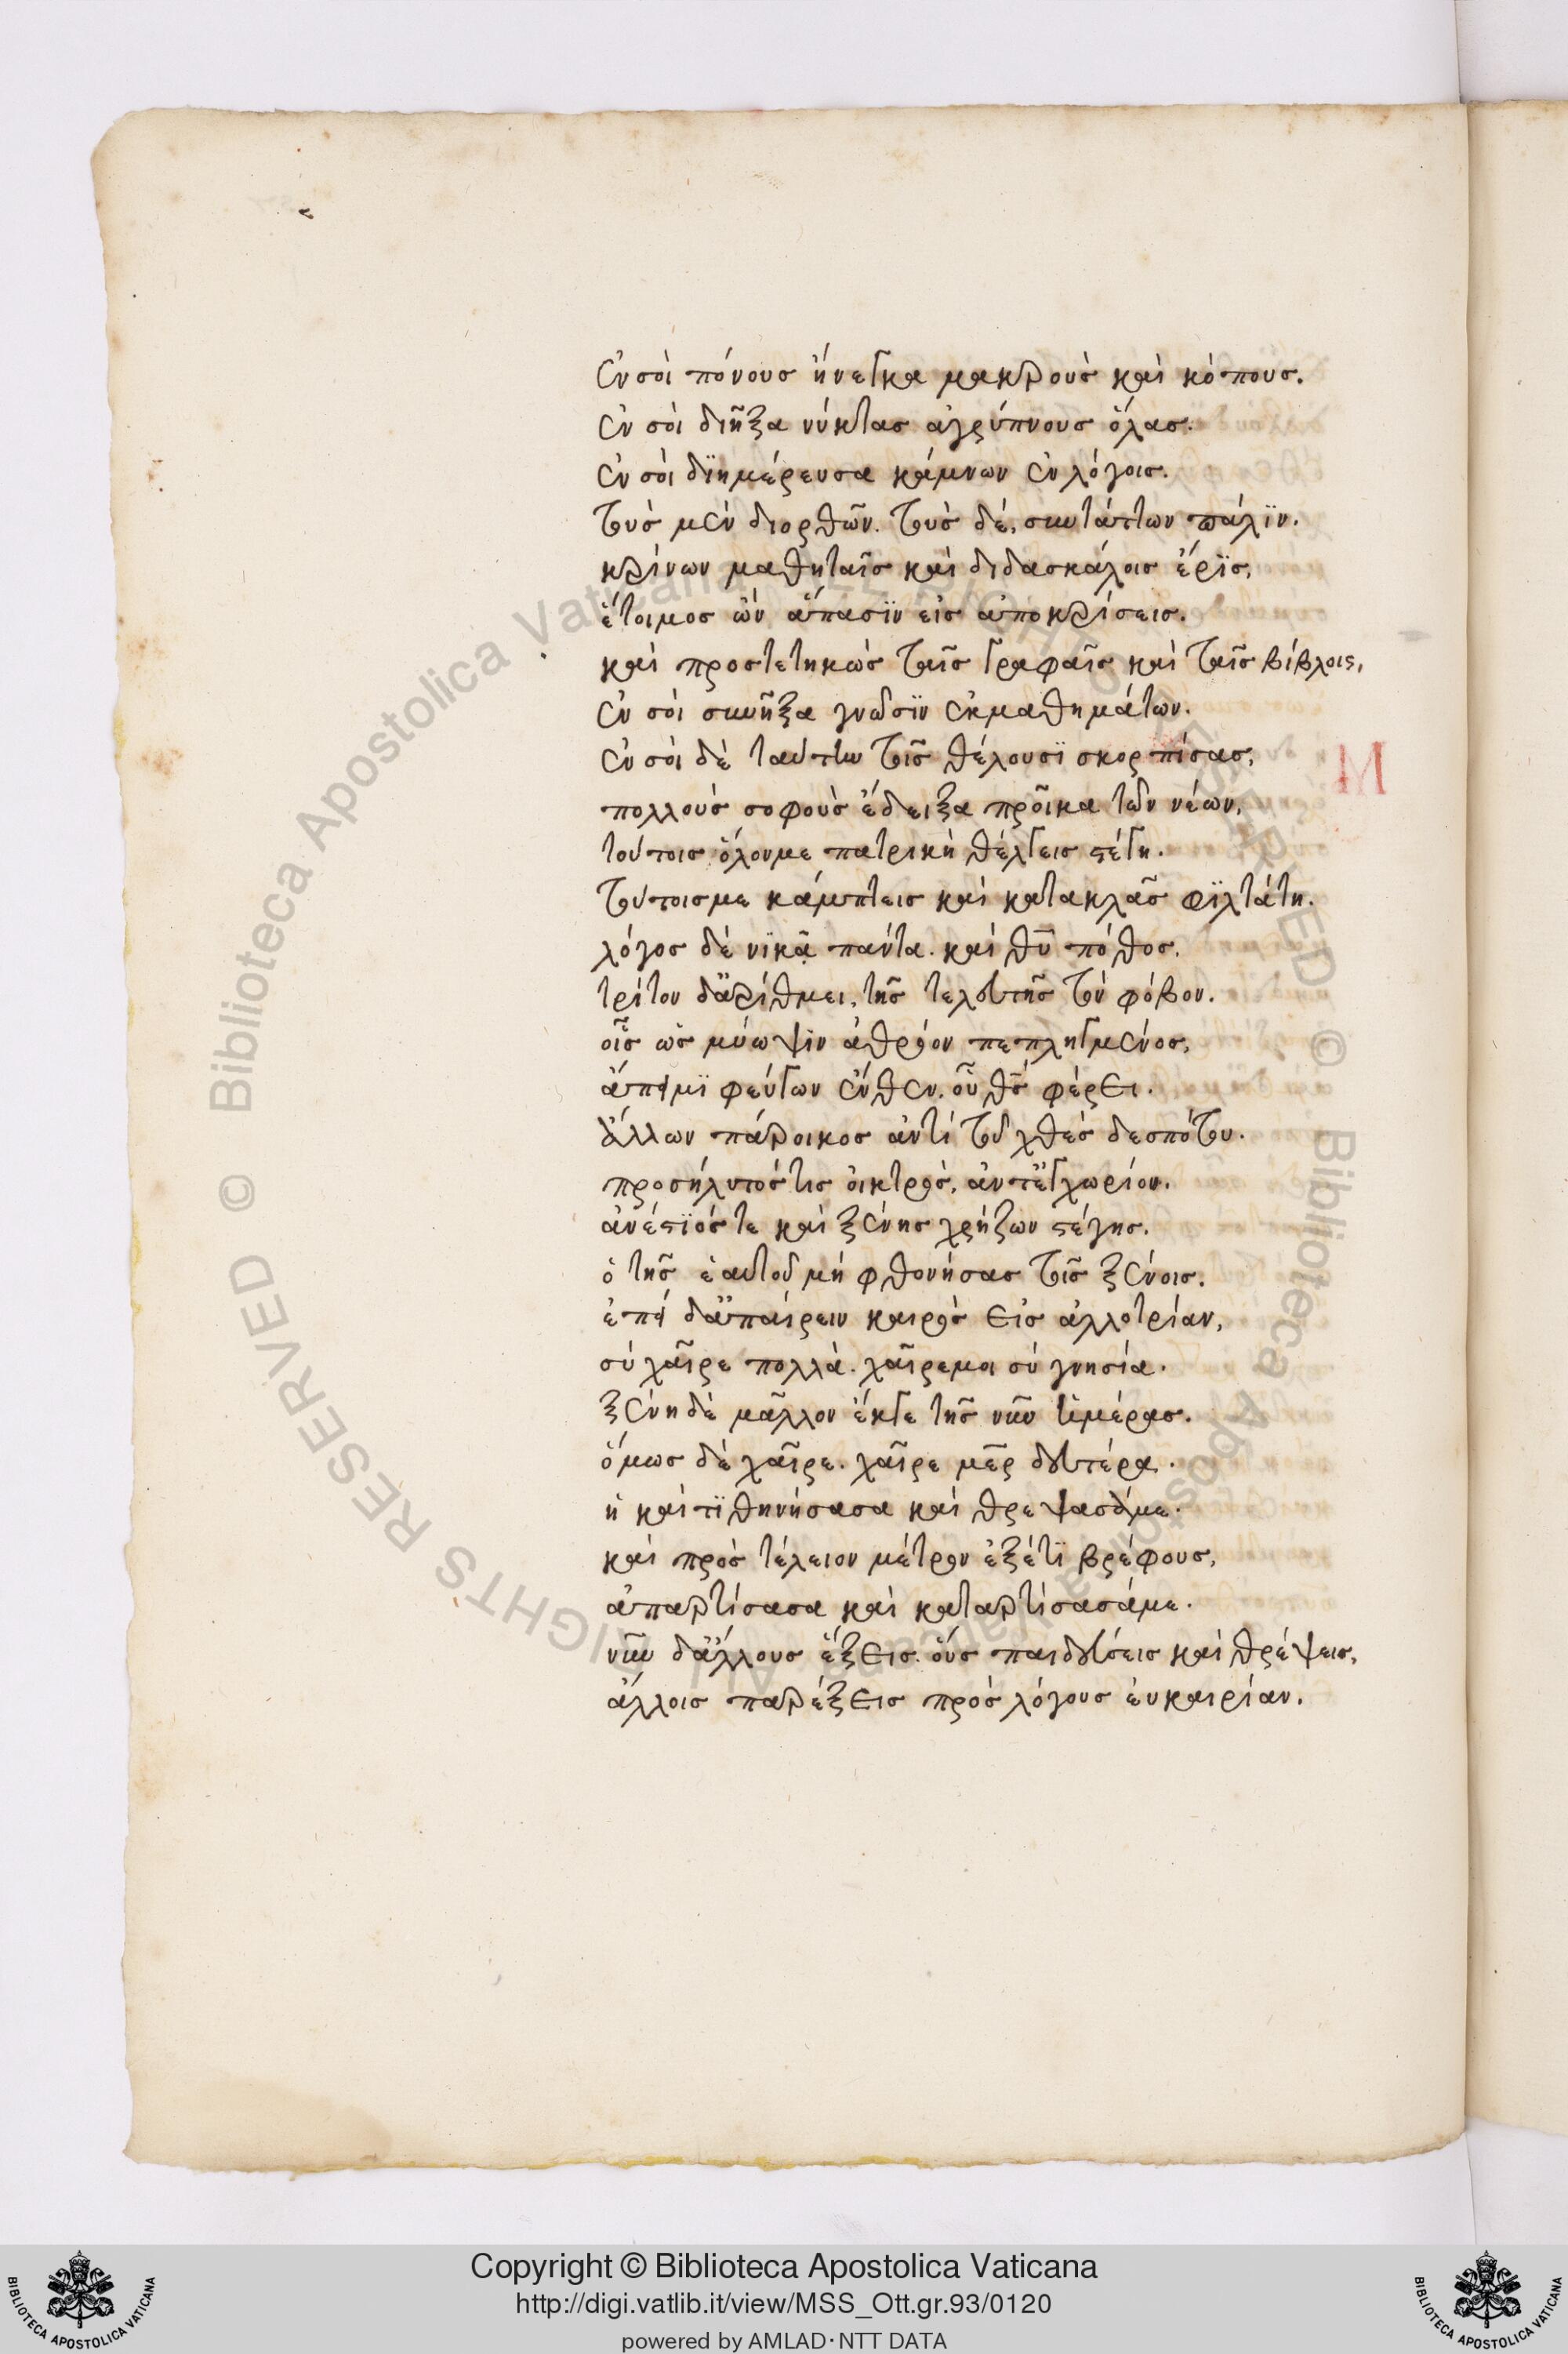 ἐν σοὶ πόνους ἤνεγκα μακροὺς καὶ κόπους.
ἐν σοὶ διῆξα νύκτας ἀγρύπνους ὅλας.
ἐν σοὶ διημέρευσα κάμνων ἐν λόγοις.
τοὺς μὲν διορθῶν. τοὺς δὲ, συντάττων πάλιν.
κρίνων μαθηταῖς καὶ διδασκάλοις ἔρις,
ἕτοιμος ὢν ἅπασιν εἰς ἀποκρίσεις.
καὶ προστετηκὼς ταῖς γραφαῖς καὶ ταῖς βίβλοις,
ἐν σοὶ συνῆξα γνῶσιν ἐκ μαθημάτων.
ἐν σοὶ δὲ ταύτην τοῖς θέλουσι σκορπίσας,
πολλοὺς σοφοὺς ἔδειξα προῖκα τῶν νέων,
τούτοις ὅλον με πατρικὴ θέλγεις στέγη.
τούτοις με κάμπτεις καὶ κατακλᾷς φιλτάτη.
λόγος δὲ νικᾷ πάντα. καὶ θυ πόθος,
τρίτον δ' ἀρίθμει, τῆς τελευτῆς τὸν φόβον.
οἷς ὡς μύωψιν ἀθρόον πεπληγμένος,
ἄπειμι φεύγων ἔνθεν. οὗ θς φέρει.
ἄλλων πάροικος ἀντὶ τοῦ χθὲς δεσπότου.
προσήλυτός τις οἰκτρὸς, ἀντ' ἐγχωρίου.
ἀνέστιός τε καὶ ξένης χρῄζων στέγης.
ὁ τῆς ἑαυτοῦ μὴ φθονήσας τοῖς ξένοις.
ἐπεὶ δ' ἀπαίρειν καιρὸς εἰς ἀλλοτρίαν,
σὺ χαῖρε πολλὰ. χαῖρέ μοι σὺ γνησία.
ξένη δὲ μᾶλλον ἔκ γε τῆς νῦν ἡμέρας.
ὅμως δὲ χαῖρε. χαῖρε μῆερ δευτέρα.
ἡ καὶ τιθηνήσασα καὶ θρέψασά με.
καὶ πρὸς τέλειον μέτρον ἐξ ἔτι βρέφους,
ἀπαρτίσασα καὶ καταρτίσασά με.
νῦν δ' ἄλλους ἕξεις. οὓς παιδεύσεις καὶ θρέψεις,
ἄλλοις παρέξεις πρὸς λόγους εὐκαιρίαν.
Copyright © Biblioteca Apostolica Vaticana
http://digi.vatlib.it/view/MSS_Ott.gr.93/0120
powered by AMLAD·NTT DATA